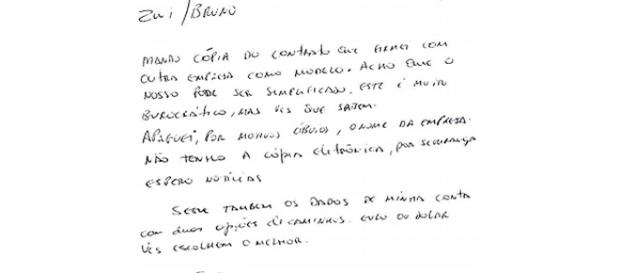 Zui/BRUNO
MANDO CÓPIA DO CONTRATO QUE FIRMEI COM
OUTRA EMPRESA COMO MODELO. ACHO QUE O
NOSSO PODE SER SIMPLIFICADO. ESTE É MUITO
BUROCRÁTICO, MAS VCS QUE SABEM.
APAGUEI, POR MOTIVOS ÓBVIOS, O NOME DA EMPRESA.
NÃO TENHO A CÓPIA ELETRÔNICA, POR SEGURANÇA
ESPERO NOTÍCIAS
SEGUE TAMBÉM OS DADOS DE MINHA CONTA
COM DUAS OPÇÕES DE CAMINHOS. EURO OU DOLAR
VCS ESCOLHEM O MELHOR.